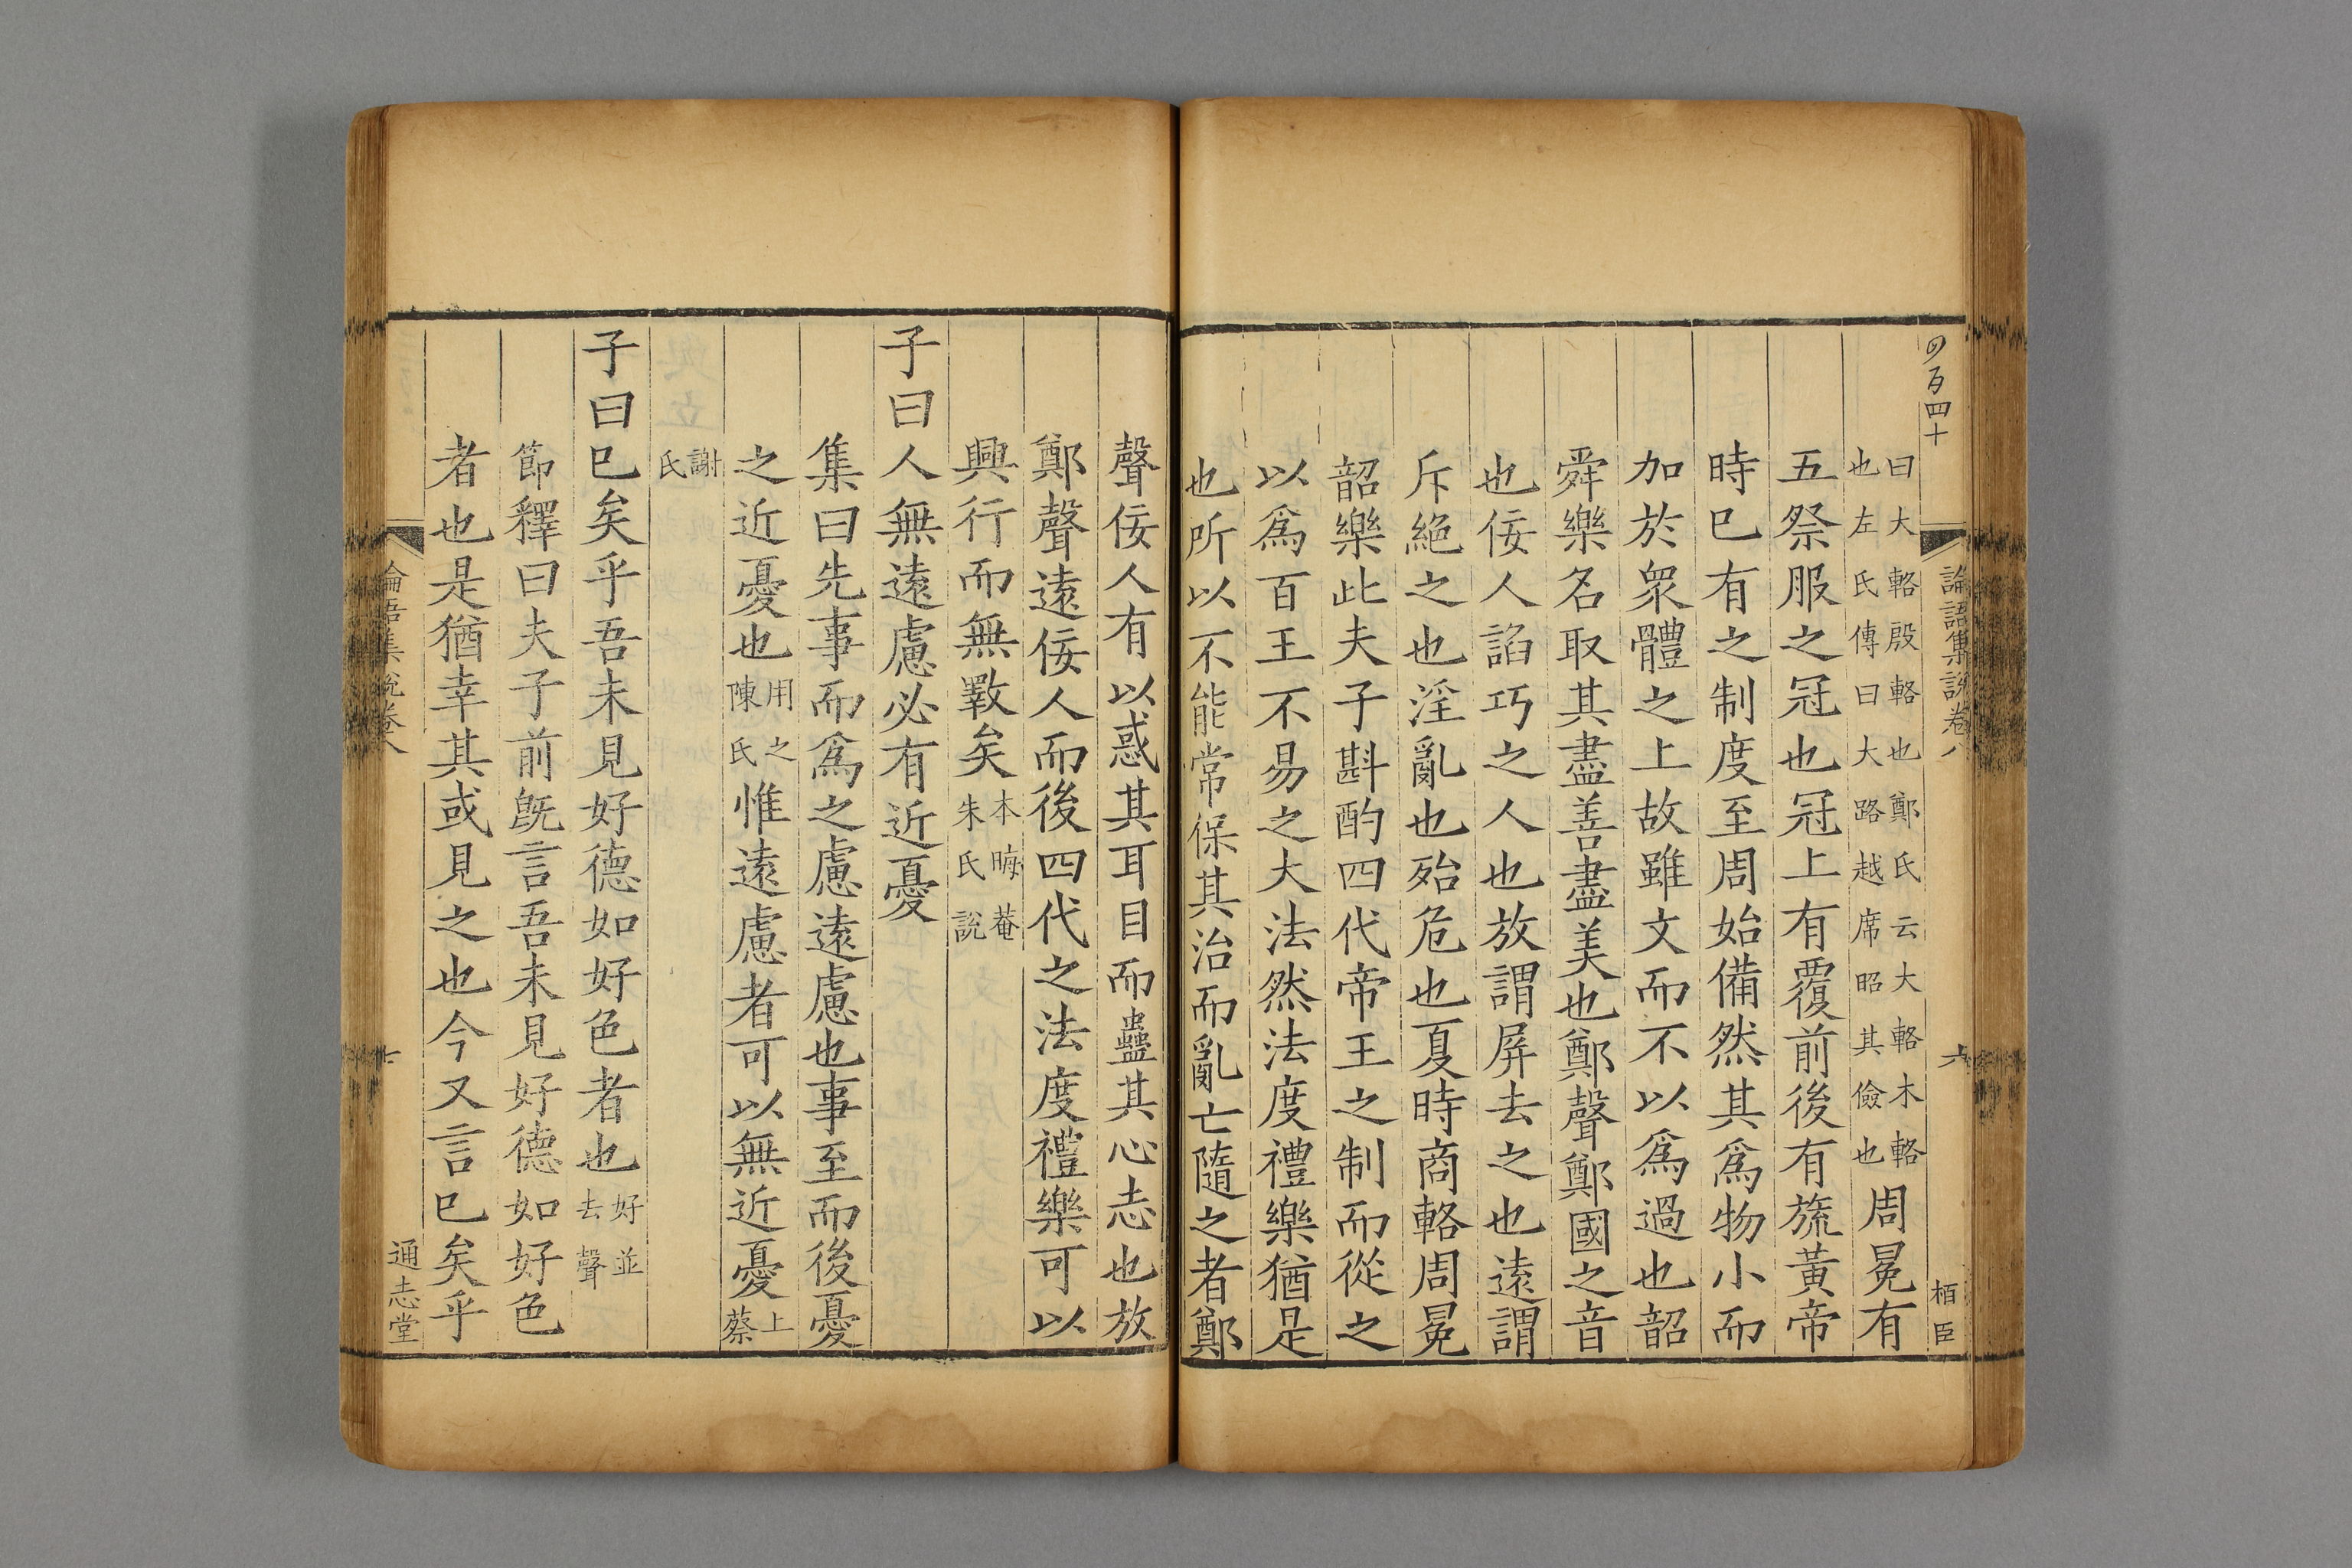 四百四十
論語集說卷八
六
栢臣
曰大輅殷輅也鄭氏云大輅木輅
也左氏傳曰大路越席昭其儉也
周冕有
五祭服之冠也冠上有覆前後有旒黃帝
時已有之制度至周始備然其爲物小而
加於衆體之上故雖文而不以爲過也韶
舜樂名取其盡善盡美也鄭聲鄭國之音
也佞人謟巧之人也放謂屏去之也遠謂
斥絕之也淫亂也殆危也夏時商輅周冕
韶樂此夫子斟酌四代帝王之制而從之
以爲百王不易之大法然法度禮樂猶是
也所以不能常保其治而亂亡隨之者鄭
聲佞人有以惑其耳目而蠱其心志也放
鄭聲遠佞人而後四代之法度禮樂可以
興行而無斁矣
本晦菴
朱氏說
子曰人無遠慮必有近憂
集曰先事而爲之慮遠慮也事至而後憂
之近憂也
用之
陳氏
惟遠慮者可以無近憂
上
蔡
謝
氏
子曰已矣乎吾未見好德如好色者也
好並
去聲
節釋曰夫子前旣言吾未見好德如好色
者也是猶幸其或見之也今又言已矣乎
論語集說卷八
七
通志堂